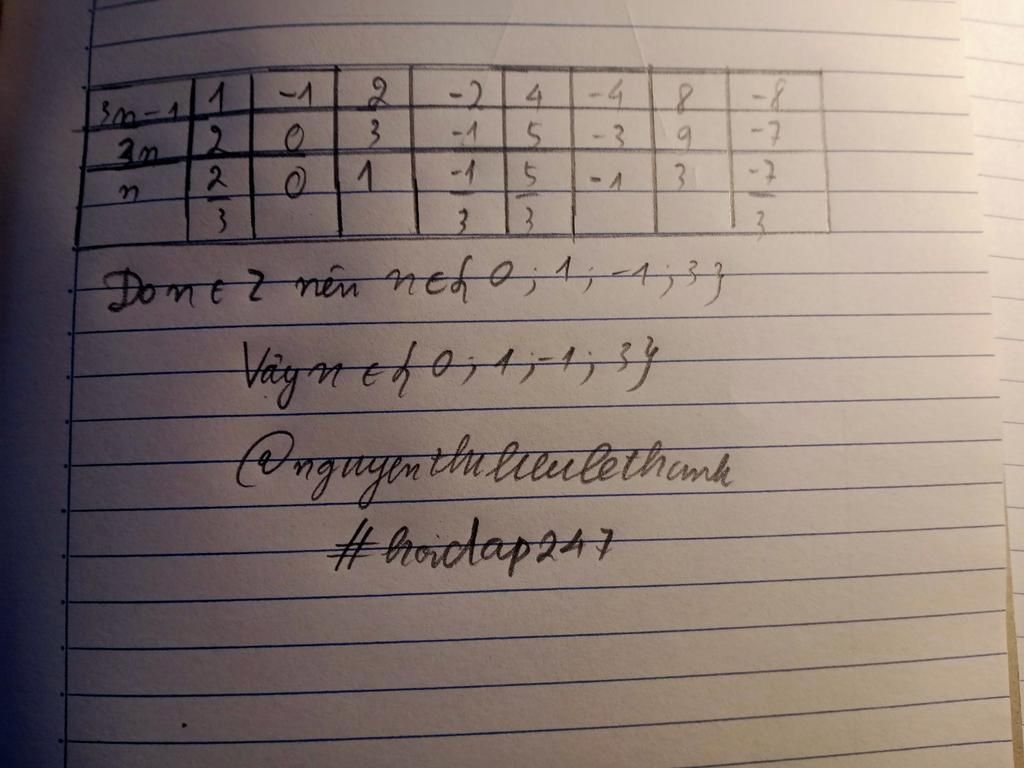 3n-1 1 -1 2 -2 4 -4 8 -8
3n 2 0 3 -1 5 -3 9 -7
n 2/3 0 1 -1/3 5/3 -1 3 -7/3
Do n ∈ Z nên n ∈ { 0 ; 1 ; -1 ; 3 }
Vậy n ∈ { 0 ; 1 ; -1 ; 3 }
#hoidap247